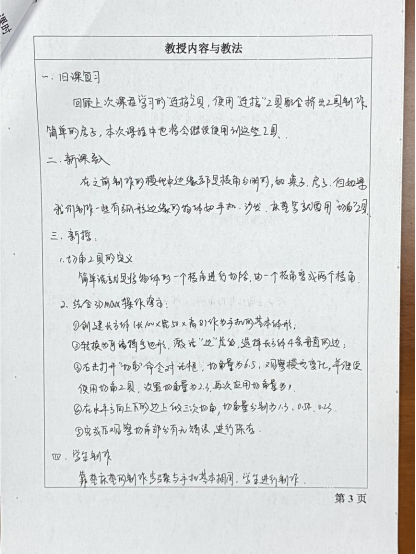 课时
教授内容与教法
一、旧课复习
回顾上次课程学习的"连接"工具,使用"连接"工具配合挤出工具制作
简单的房子,本次课程中也将会继续使用到这些工具。
二、新课导入
在之前制作的模型中边缘都是棱角分明的,如桌子、房子。但如果
我们制作一些有弧形边缘的物体如手机、沙发、床等等就需用"切角"工具
三、新授:
1.切角工具的定义
简单说就是将物体的一个棱角进行切除,由一个棱角变成两个棱角
2.结合3Dmax操作演示:
①创建长方体作为手机的基本体形;
②转换为可编辑多边形,激活"边"层级,选择长方体4条垂直的边;
③右击打开"切角"命令对话框,切角量为6.5,观察模型变化,并继续
使用切角工具,设置切角量为2.3,再次应用切角量为1
④在水平方向上下的边上做三次切角,切角量分别为1.3、0.58、0.23
⑤完成后观察切角部分有无错误,进行保存。
四、学生制作
靠垫床垫的制作步骤与手机基本相同,学生进行制作.
第 3 页